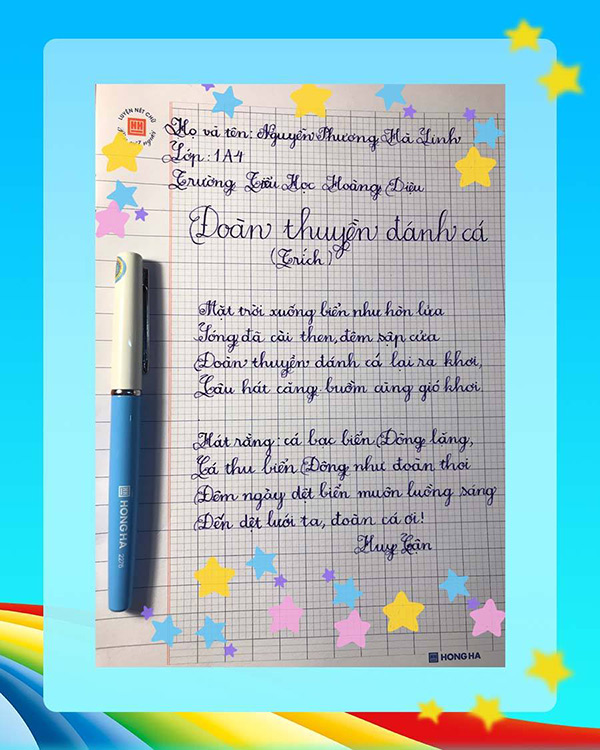 LUYỆN NÉT CHỮ
HH
Họ và tên: Nguyễn Phương Hà Linh
Lớp: 1A4
Trường Tiểu Học Hoàng Diệu
Đoàn thuyền đánh cá
(Trích)
Mặt trời xuống biển như hòn lửa
Sóng đã cài then, đêm sập cửa
Đoàn thuyền đánh cá lại ra khơi,
Câu hát căng buồm cùng gió khơi.
Hát rằng: cá bạc biển Đông lặng,
Cá thu biển Đông như đoàn thoi
Đêm ngày dệt biển muôn luồng sáng
Đến dệt lưới ta, đoàn cá ơi!
Huy Cận
HONG HA 2276
HONG HA